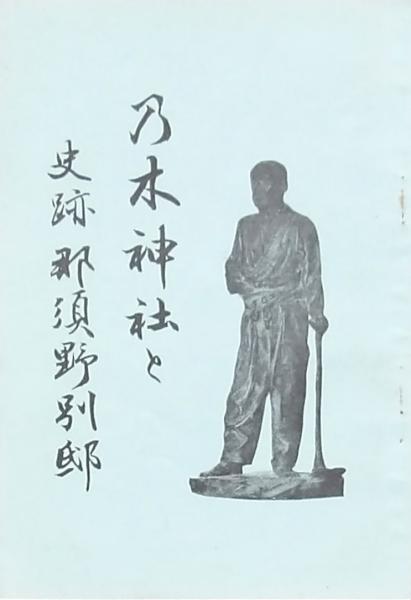 乃木神社と
史跡那須野別邸